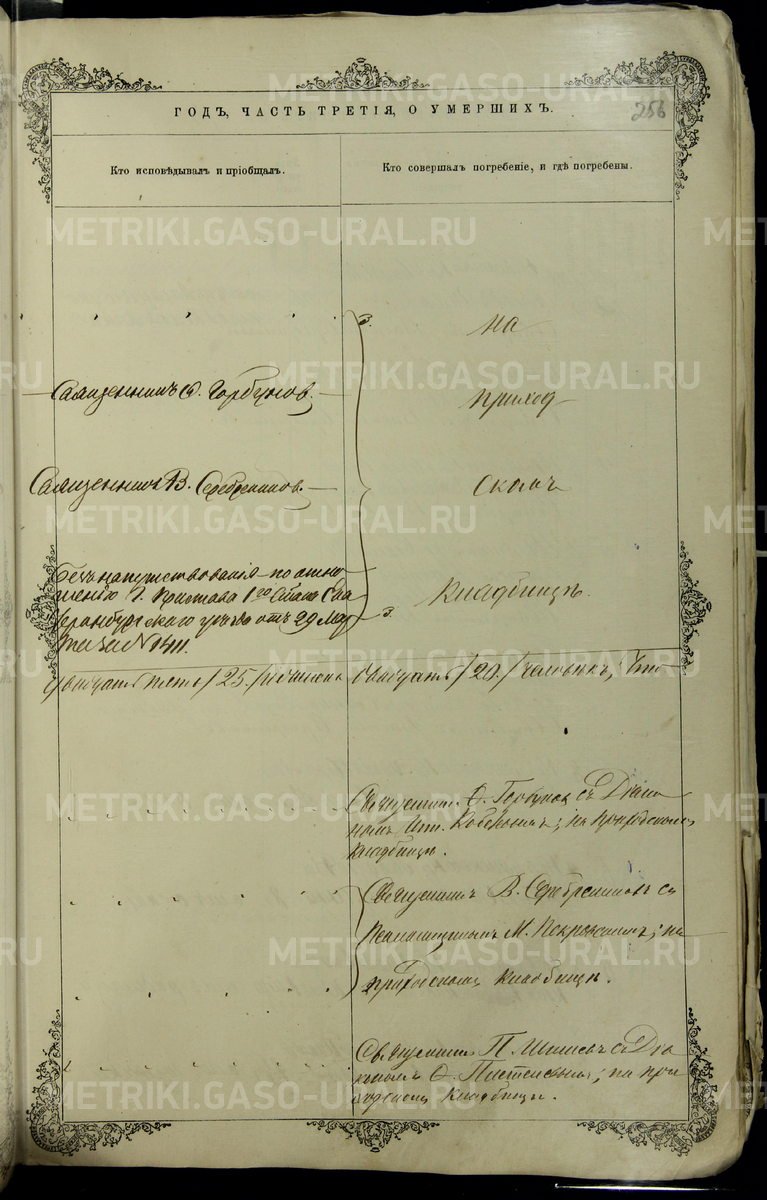 ГОДЪ, ЧАСТЬ ТРЕТІЯ, О УМЕРШИХЪ.
256
Кто исповѣдывалъ и пріобщалъ.
Кто совершалъ погребеніе, и гдѣ погребены.
на
Священникъ Ѳ. Горбунов.
приход
Священникъ В. Серебренников.
скомъ
Безъ напутствования по отно
шенію Г. Пристава 1го Стана Ека
Кладбищѣ.
теринбургскаго уѣзда отъ 29 Мар
та за № 1411.
двадцать пять /25./ и
двадцать /20./ человѣкъ; Что
Священникъ Ѳ. Горбунов съ Діако
номъ ; на приходскомъ
кладбищѣ.
Священникъ В. Серебренниковъ съ
Псаломщикомъ М. Покровскимъ; на
приходскомъ кладбищѣ.
Священникъ П. съ Діа
кономъ Ѳ. ; на при
ходскомъ кладбищѣ.
METRIKI.GASO-URAL.RU